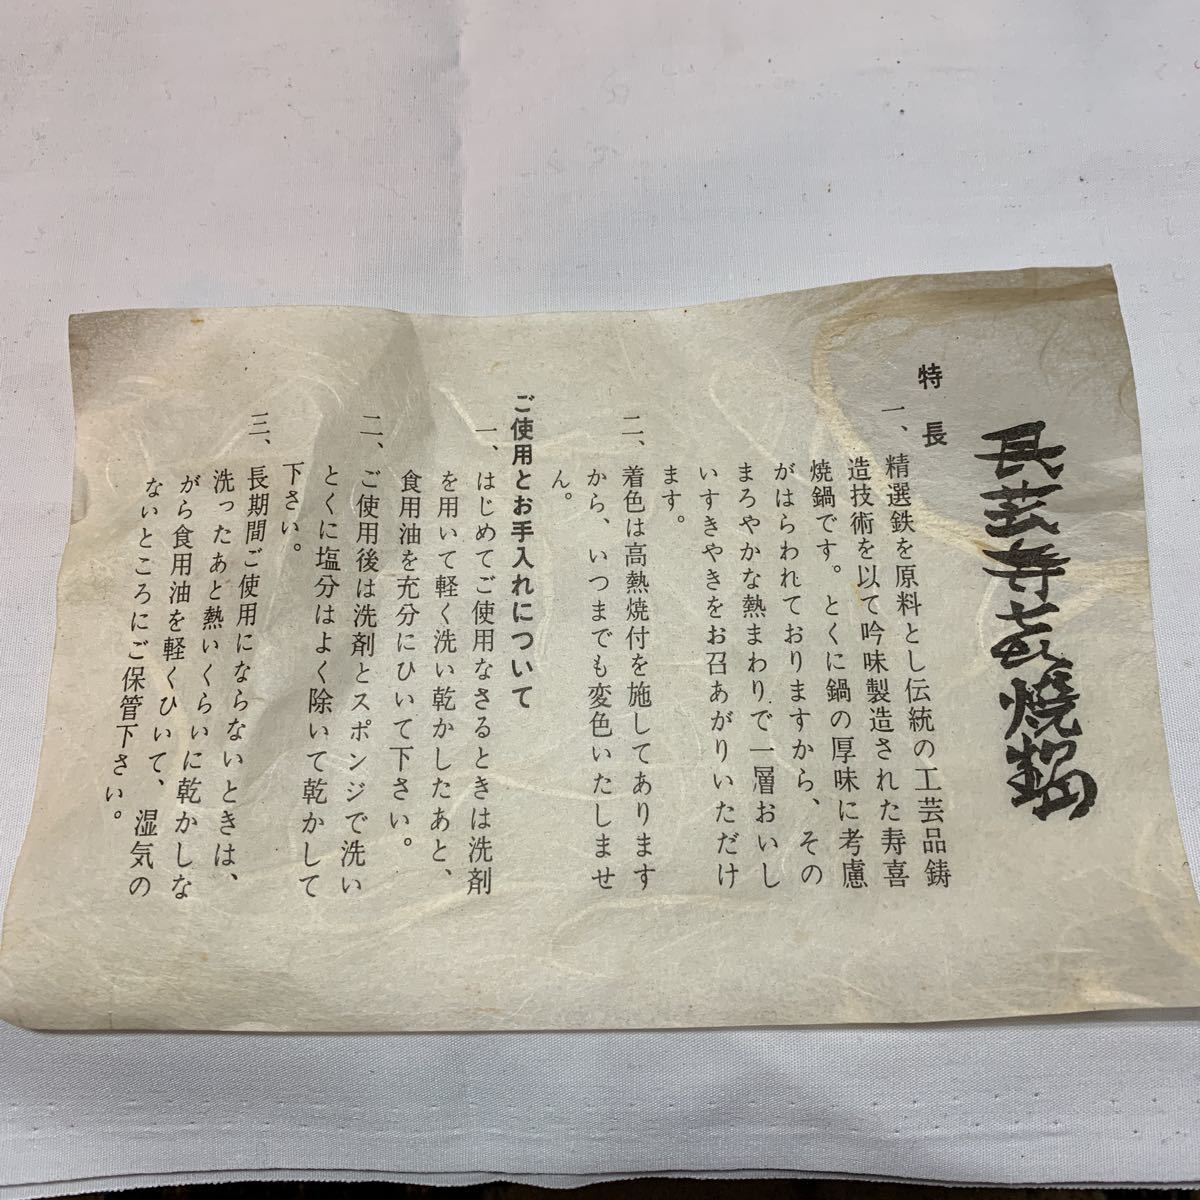 民芸寿喜焼鍋
特長
一、精選鉄を原料とし伝統の工芸品鋳
造技術を以て吟味製造された寿喜
焼鍋です。とくに鍋の厚味に考慮
がはらわれておりますから、その
まろやかな熱まわりで一層おいし
いすきやきをお召あがりいただけ
ます。
二、着色は高熱焼付を施してあります
から、いつまでも変色いたしませ
ん。
ご使用とお手入れについて
一、はじめてご使用なさるときは洗剤
を用いて軽く洗い乾かしたあと、
食用油を充分にひいて下さい。
二、ご使用後は洗剤とスポンジで洗い
とくに塩分はよく除いて乾かして
下さい。
三、長期間ご使用にならないときは、
洗ったあと熱いくらいに乾かしな
がら食用油を軽くひいて、湿気の
ないところにご保管下さい。